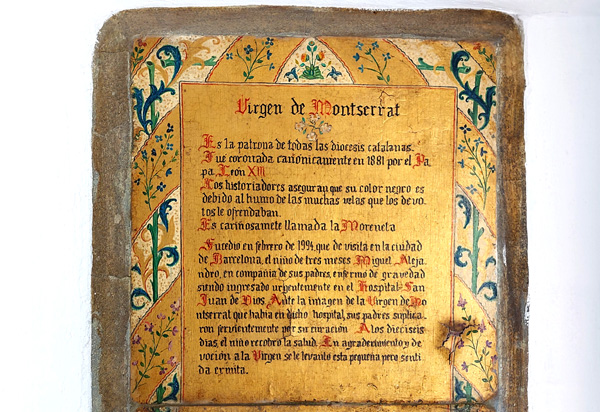 Virgen de Montserrat
Es la patrona de todas las diocesis catalanas.
Fue coronada canonicamente en 1881 por el Pa
pa León XIII
Los historiadores aseguran que su color negro es
debido al humo de las muchas velas que los devo
tos le ofrendaban.
Es cariñosamete llamada la Moreneta
Sucedio en febrero de 1994, que de visita en la ciudad
de Barcelona, el niño de tres meses Miguel Aleja
ndro, en compañia de sus padres, enfermo de gravedad
siendo ingresado urgentemente en el Hospital San
Juan de Dios. Ante la imagen de la Virgen de Mo
ntserrat que habia en dicho hospital, sus padres suplica
ron fervientemente por su curación. A los dieciseis
dias, el niño recobro la salud. En agradecimiento y de
voción a la Virgen se le levanto esta pequeña pero senti
da ermita.